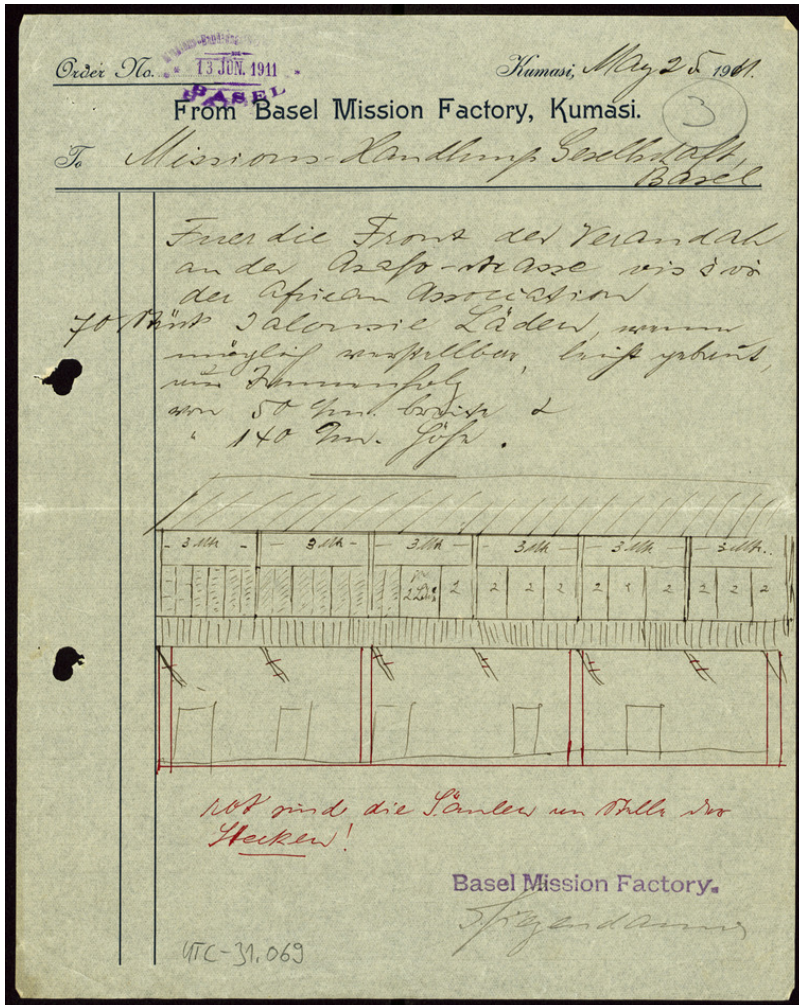 Order No.
13 JUN. 1911
BASEL
Kumasi, May 25 1911.
From Basel Mission Factory, Kumasi.
3
To Missions-Handlungs Gesellschaft,
Basel
Fuer die Front der Verandah
an der Asafo-strasse vis à vis
der African Association
70 Stück Jalousie Läden, wenn
möglich verstellbar, leicht gebaut,
aus Tannenholz
von 50 Cm. breite &
" 140 Cm. Höhe.
- 3 Mtr - - 3 Mtr - - 3 Mtr - - 3 Mtr - - 3 Mtr - - 3 Mtr.
2 2 2 2 2 2 2 2 2 2
rot sind die Säulen an Stelle der
Stecken!
Basel Mission Factory.
UTC-31.069